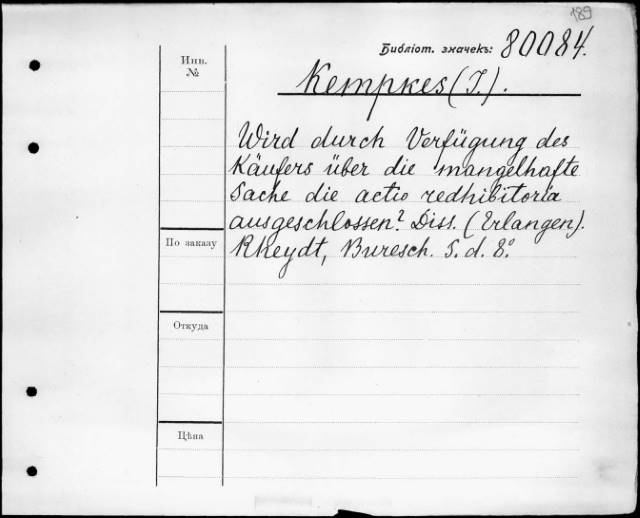 189
Библіот. значекъ: 80084.
Kempkes (J.).
Инв.
№
Wird durch Verfügung des
Käufers über die mangelhafte
Sache die actio redhibitoria
ausgeschlossen? Diss. (Erlangen).
Rheydt, Buresch. S. d. 8°
По заказу
Откуда
Цѣна